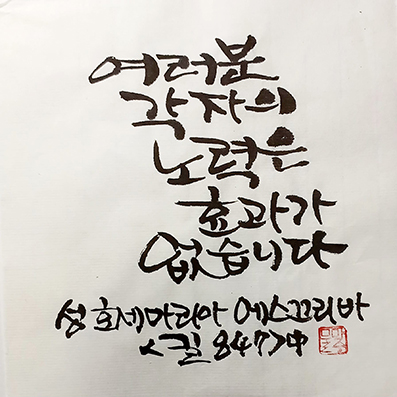 여러분
각자의
노력은
효과가
없습니다
성 호세마리아 에스끄리바
<길 847>中